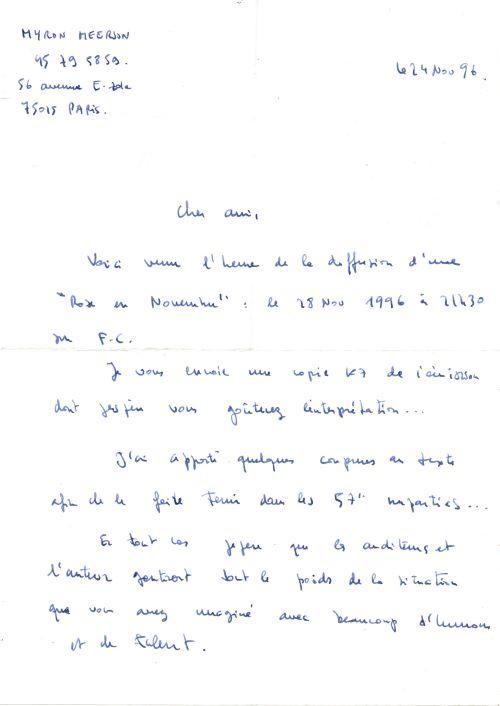 MYRON MEERSON
45 79 5859.
56 avenue E. Zola
75015 PARIS.
le 24 Nov 96.
Cher ami,
Voici venue l'heure de la diffusion d'une
"Rose en Novembre" : le 28 Nov 1996 à 21H30
sur F.C.
Je vous envoie une copie K7 de l'émission
dont j'espère vous goûterez l'interprétation...
J'ai apporté quelques coupures au texte
afin de le faire tenir dans les 57' imparties...
En tout cas j'espère que les auditeurs et
l'auteur goûteront tout le poids de la situation
que vous avez imaginé avec beaucoup d'humour
et de talent.